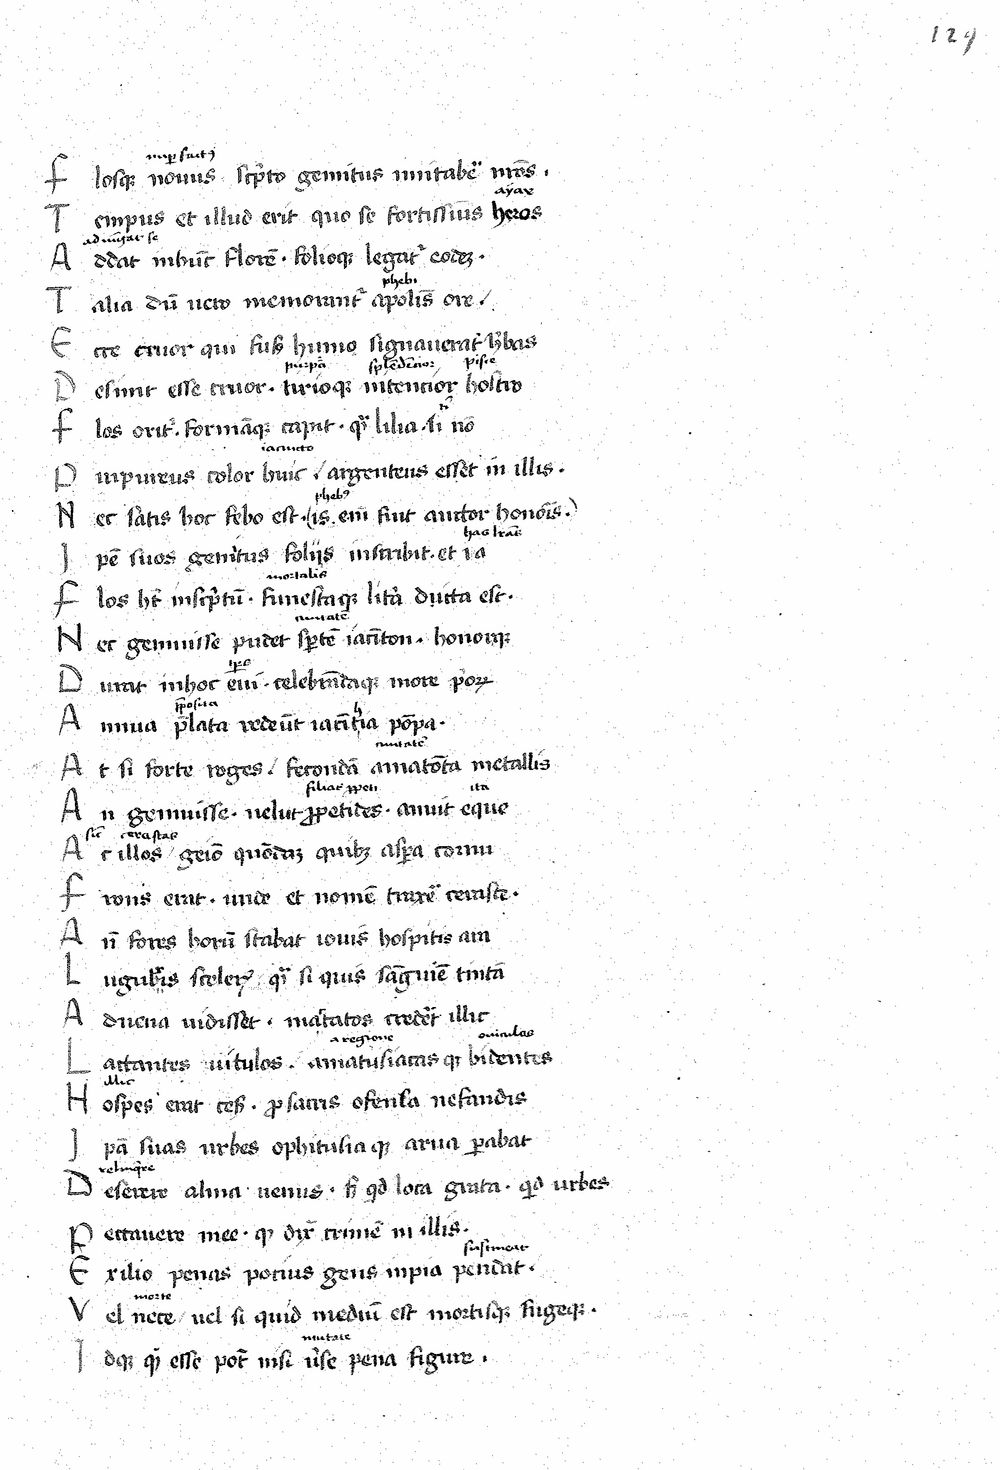 129
nup fact9
Flosq; nouus scpto gemitus imitabē nrōs .
ayax
Tempus et illud erit quo se fortissimus heros
adiungat se
Addat inhūc florē . folioq; legat² eodez .
phebi
Talia dū uero memorant² apolis ore /
Ecce cruor qui fusus humo signauerat hbas
purpa splēdētior pisse
Desinit esse cruor . tirioq; nitentior hostro
Flos orit² . formāq; capit . qā lilia . si nō
iacincto
Purpureus color huic / argenteus esset in illis .
pheb9
Nec satis hoc febo est . (is em fuit auctor honoris .)
has lras
Ipē suos gemitus folijs inscribit . et ia
Flos ht inscptū . funestaq; litā ducta est .
mortalis
ciuitatē
Nec genuisse pudet sptē iacinton . honorq;
Durat inhoc eui . celebrādaq; more prior
pposita
Annua plata redeūt iacīthia pōpa .
ciuitatē
At si forte roges / fecondā amatōta metallis
filias ppeti ita
An genuisse . uelut propetides . anuit eque
sic cerastas
Ac illos / geīo quōdaz quib; aspa cornu
Frons erat . unde et nomē traxē ceraste .
An fores horū stabat iouis hospitis ara
Lugubris sceler² . qā si quis sāguine tintā
Aduena uidisset . mactatos crederet illic
a regione ouiculas
Lactantes uitulos / amatusiacas q; bidentes
illic
Hospes erat cesus . p sacris ofensa nefandis
Ipā suas urbes ophitusia q; arua parabat
relinqre
Deserere alma uenus . s; qd loca grata . qid urbes
Peccauere mee . q; dix crimē in illis .
sustineat
Exilio penas potius gens inpia pendat .
morte
Vel nece / uel si quid mediū est mortisq; fugeq; .
mutate
Idq; qd esse pot nisi use pena figure .